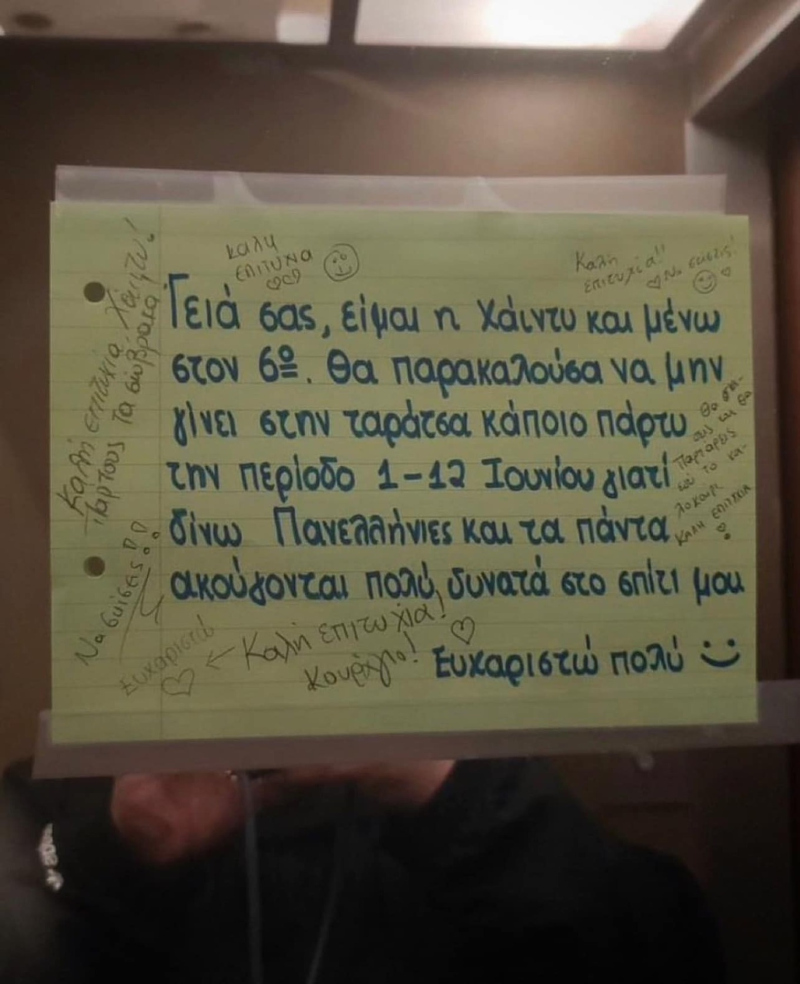 Καλη
επιτυχια
Καλή
επιτυχία!!
Να σκίσεις!
Γειά σας, είμαι η Χάιντυ και μένω
στον 6º. Θα παρακαλούσα να μην
γίνει στην ταράτσα κάποιο πάρτυ
την περίοδο 1-12 Ιουνίου γιατί
δίνω Πανελλήνιες και τα πάντα
ακούγονται πολύ, δυνατά στο σπίτι μου
Ευχαριστώ πολύ
Καλή επιτυχία Χάιντυ!
Παρτους τα σώβρακα
Να σκίσεις!!
Ευχαριστώ
← Καλή επιτυχία!
Κουράγιο!
Θα
παρταρεις
το κα-
λοκαιρι
καλη επιτυχια